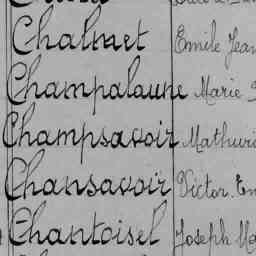 Chalmet Emile Jean
Champalaune Marie
Champsavoir Mathuri
Chansavoir Victor. Em
Chantoisel Joseph Ma